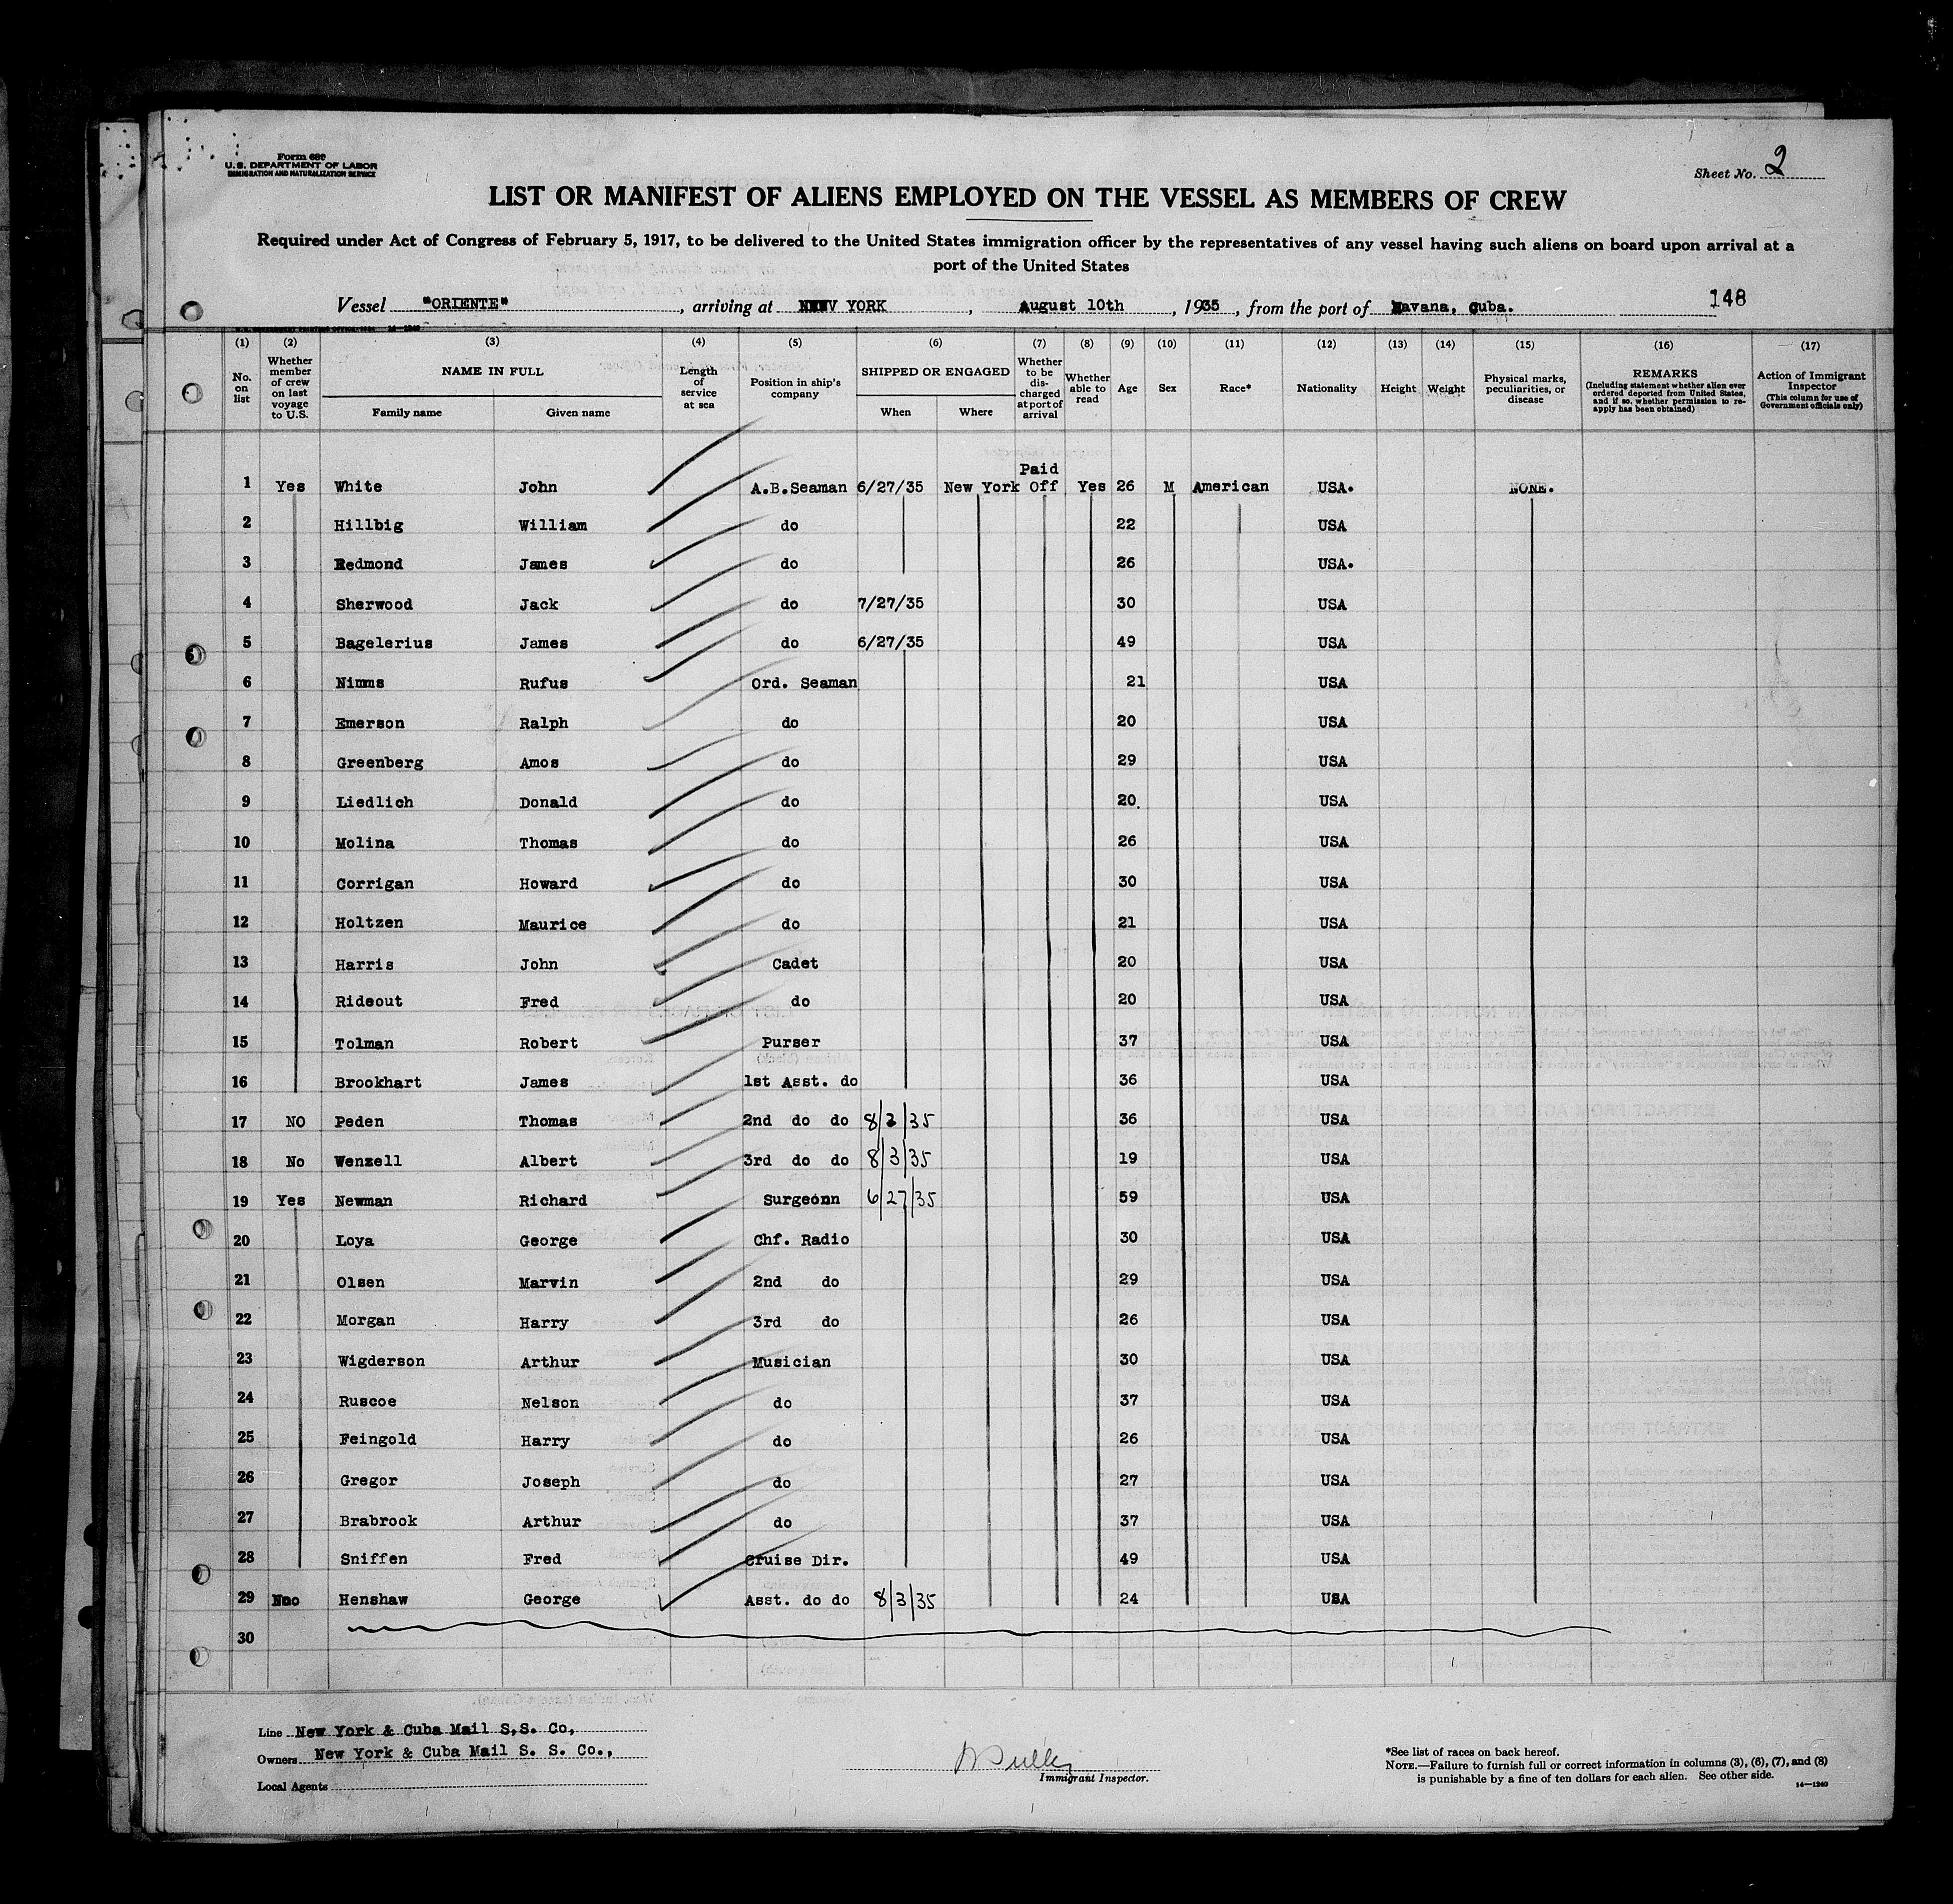 Form 680
U. S. DEPARTMENT OF LABOR
IMMIGRATION AND NATURALIZATION SERVICE
Sheet No. 2
LIST OR MANIFEST OF ALIENS EMPLOYED ON THE VESSEL AS MEMBERS OF CREW
Required under Act of Congress of February 5, 1917, to be delivered to the United States immigration officer by the representatives of any vessel having such aliens on board upon arrival at a
port of the United States
Vessel "ORIENTE", arriving at NEW YORK, August 10th, 1935, from the port of Havana, Cuba. 148
(1) No. on list
(2) Whether member of crew on last voyage to U.S.
(3) NAME IN FULL Family name Given name
(4) Length of service at sea
(5) Position in ship's company
(6) SHIPPED OR ENGAGED When Where
(7) Whether to be discharged at port of arrival
(8) Whether able to read
(9) Age
(10) Sex
(11) Race*
(12) Nationality
(13) Height
(14) Weight
(15) Physical marks, peculiarities, or disease
(16) REMARKS (Including statement whether alien ever ordered deported from United States, and if so, whether permission to re-apply has been obtained)
(17) Action of Immigrant Inspector (This column for use of Government officials only)
1 Yes White John A.B.Seaman 6/27/35 New York Paid Off Yes 26 M American USA. NONE.
2 Hillbig William do 22 USA
3 Redmond James do 26 USA.
4 Sherwood Jack do 7/27/35 30 USA
5 Bagelerius James do 6/27/35 49 USA
6 Nimms Rufus Ord. Seaman 21 USA
7 Emerson Ralph do 20 USA
8 Greenberg Amos do 29 USA
9 Liedlich Donald do 20. USA
10 Molina Thomas do 26 USA
11 Corrigan Howard do 30 USA
12 Holtzen Maurice do 21 USA
13 Harris John Cadet 20 USA
14 Rideout Fred do 20 USA
15 Tolman Robert Purser 37 USA
16 Brookhart James 1st Asst. do 36 USA
17 NO Peden Thomas 2nd do do 8/3/35 36 USA
18 No Wenzell Albert 3rd do do 8/3/35 19 USA
19 Yes Newman Richard Surgeonn 6/27/35 59 USA
20 Loya George Chf. Radio 30 USA
21 Olsen Marvin 2nd do 29 USA
22 Morgan Harry 3rd do 26 USA
23 Wigderson Arthur Musician 30 USA
24 Ruscoe Nelson do 37 USA
25 Feingold Harry do 26 USA
26 Gregor Joseph do 27 USA
27 Brabrook Arthur do 37 USA
28 Sniffen Fred Cruise Dir. 49 USA
29 Nno Henshaw George Asst. do do 8/3/35 24 USA
30
Line New York & Cuba Mail S.S. Co,
Owners New York & Cuba Mail S. S. Co.,
Local Agents
Immigrant Inspector.
*See list of races on back hereof.
NOTE.—Failure to furnish full or correct information in columns (3), (6), (7), and (8)
is punishable by a fine of ten dollars for each alien. See other side.
14—1240